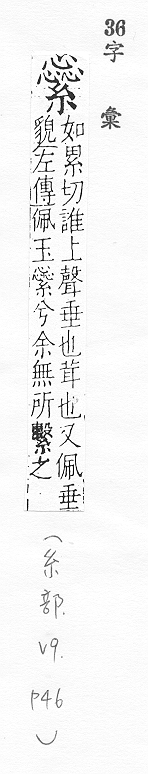 36
字彙
繠
如累切誰上聲垂也茸也又佩垂
貌左傳佩玉繠兮余無所繫之
(糸部.
v9.
P46
)